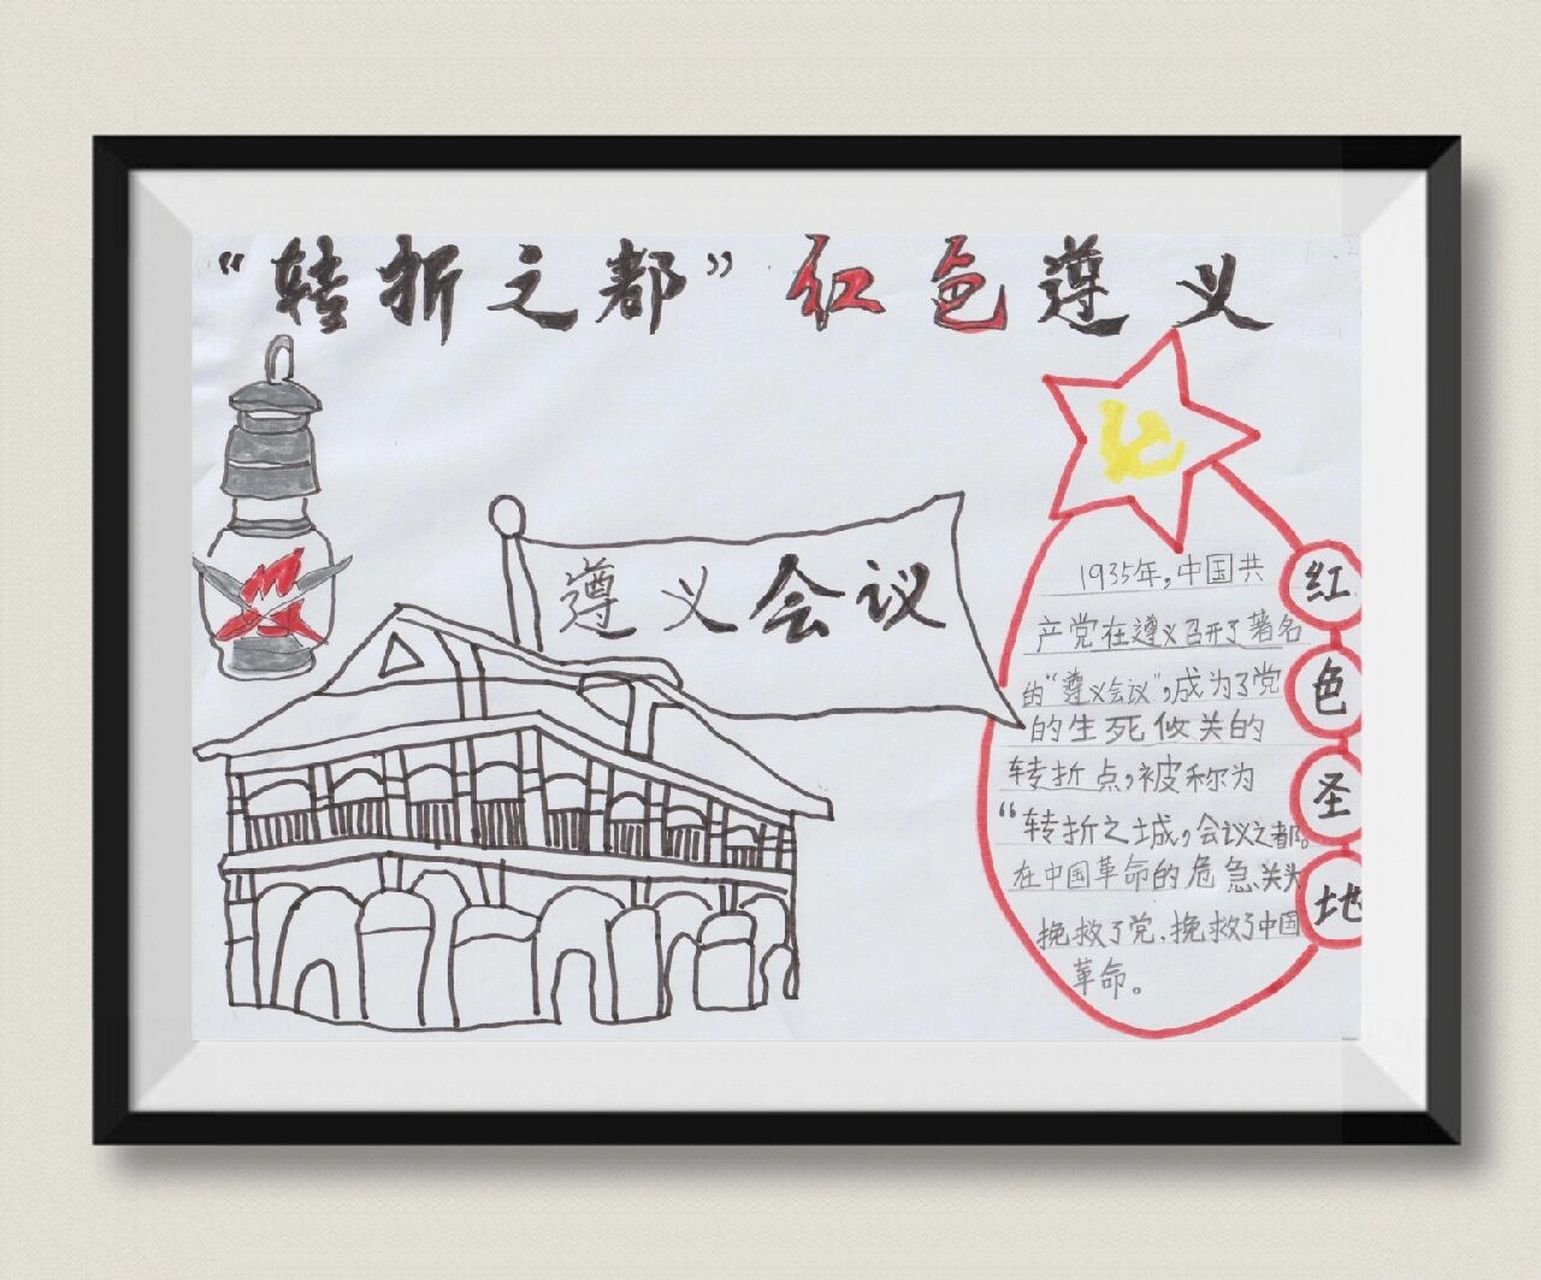 “转折之都”红色遵义
遵义会议
1935年,中国共
产党在遵义召开了著名
的“遵义会议”,成为了党
的生死攸关的
转折点,被称为
“转折之城,会议之都。
在中国革命的危急关头
挽救了党,挽救了中国
革命。
红
色
圣
地